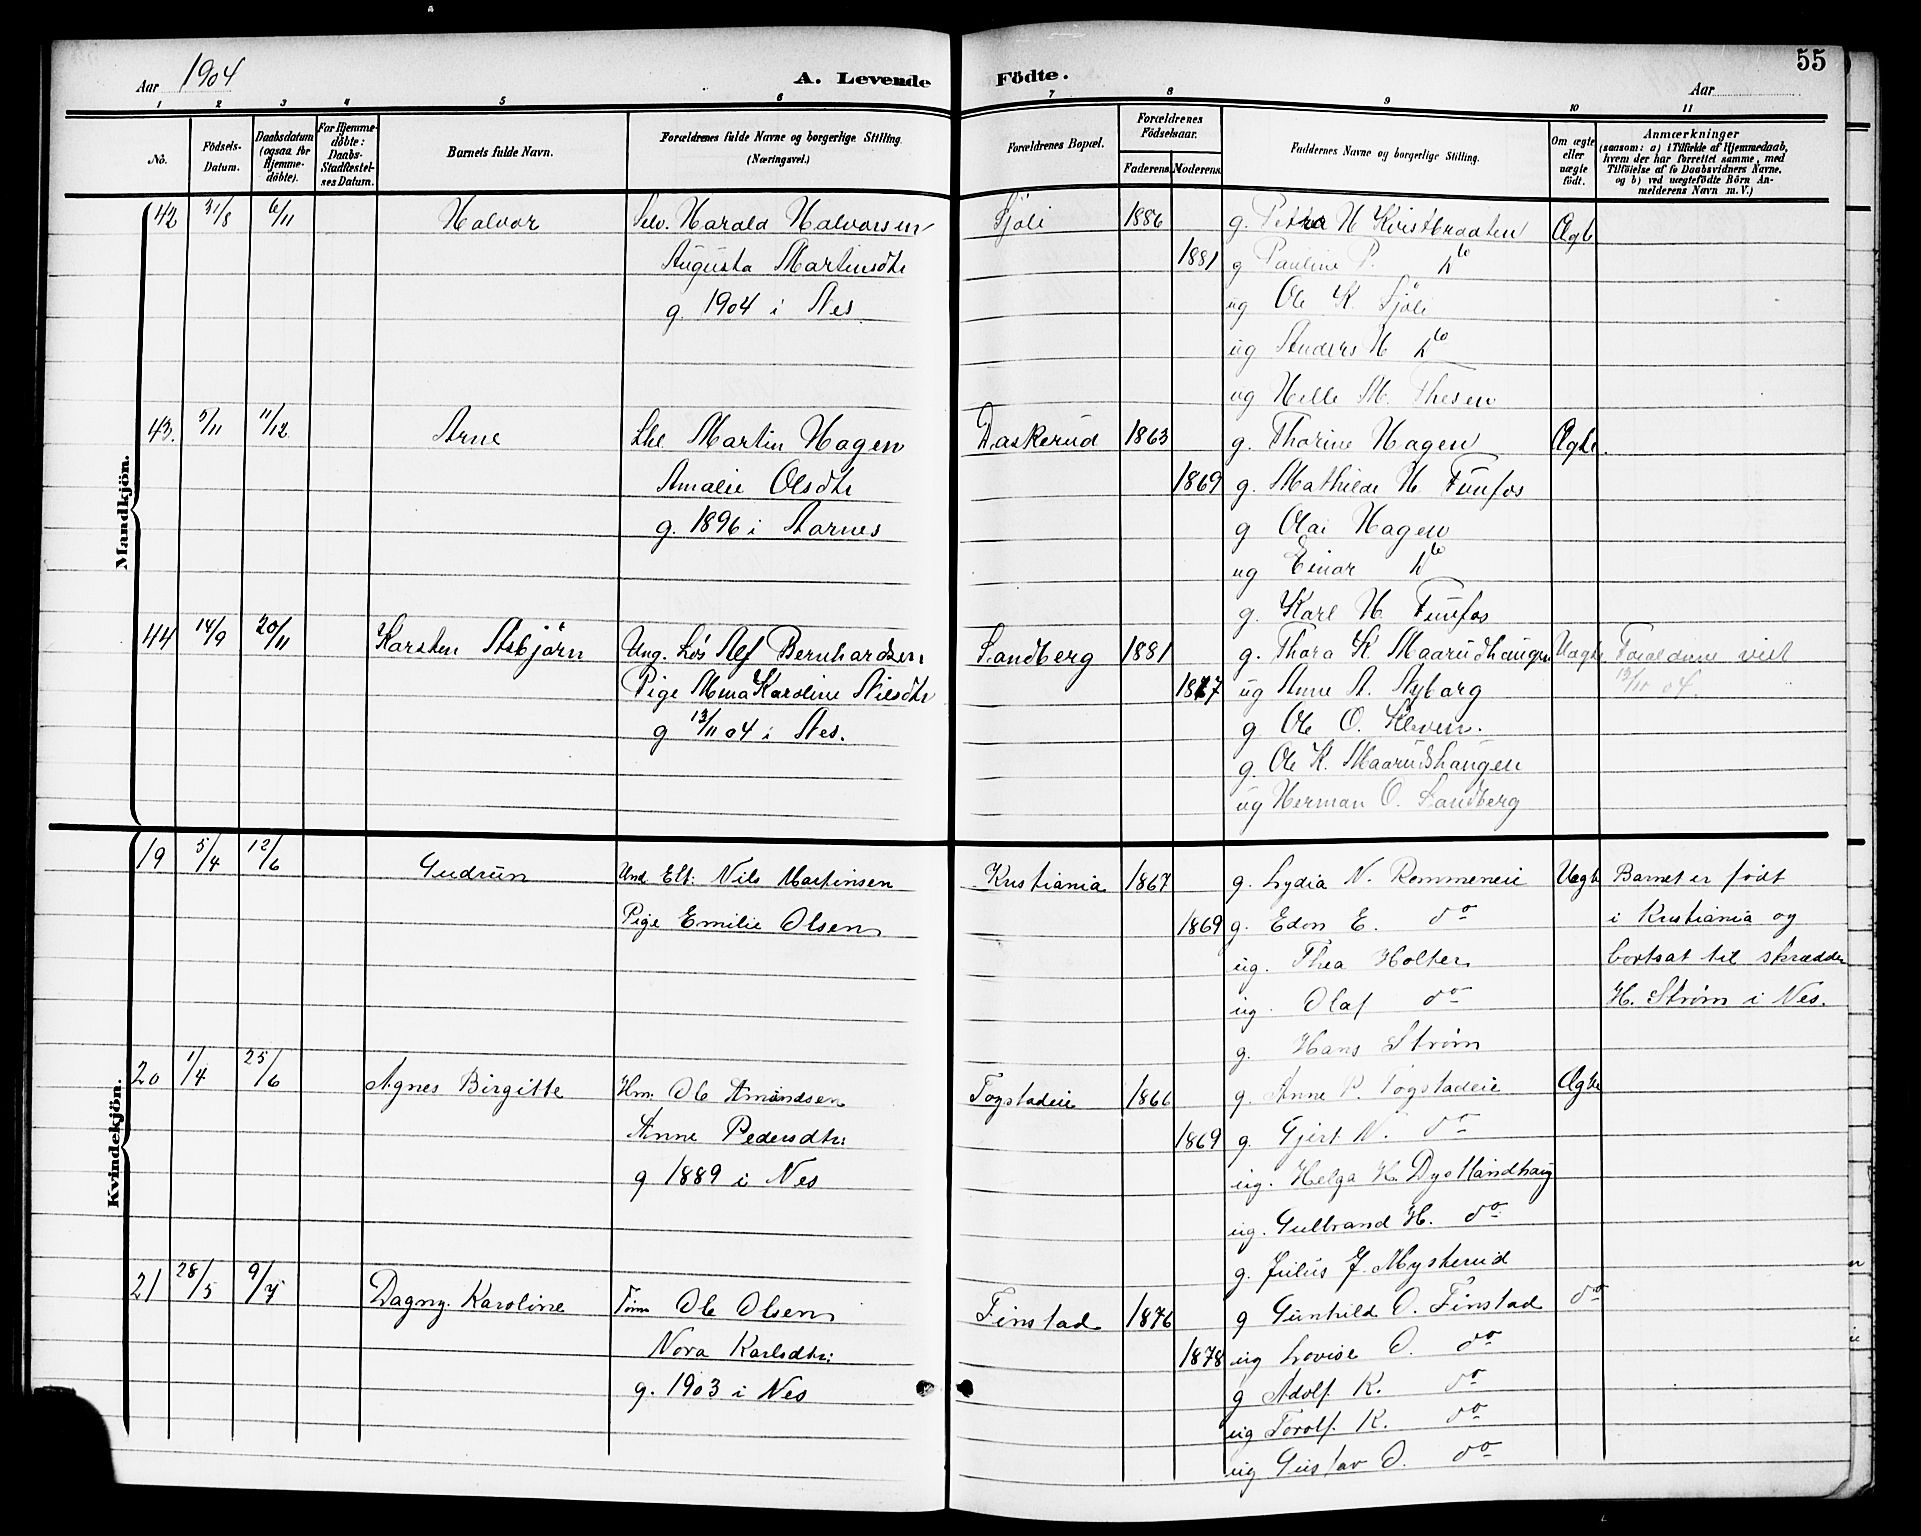 55
Aar 1904
A. Levende Födte.
Aar
1 2 3 4 5 6 7 8 9 10 11
No.
Födsels-Datum.
Daabsdatum (ogsaa for Hjemme-döbte).
For Hjemme-döbte: Daabs-Stadfæstel-ses Datum.
Barnets fulde Navn.
Forældrenes fulde Navne og borgerlige Stilling. (Næringsvei.)
Forældrenes Bopæl.
Forældrenes Födselsaar.
Faderens. Moderens.
Faddernes Navne og borgerlige Stilling.
Om ægte eller uægte födt.
Anmærkninger
(saasom: a) i Tilfælde af Hjemmedaab,
hvem der har forrettet samme, med
Tilföielse af to Daabsvidners Navne,
og b) ved uægtefödte Börn An-
melderens Navn m. V.)
Mandkjön.
42 31/8 6/11 Halvor Selv. Harald Halvorsen Sjöli 1886 g. Petra H Kvistbraaten Ægte
Augusta Martinsdtr 1881 g Pauline P. do
g. 1904 i Nes ug Ole K Sjöli
ug Anders H do
ug Helle M. Thesen
43. 5/11 11/12 Arne Martin Hagen Daskerud 1863 g. Thorine Hagen Ægte.
Amalie Olsdtr 1869 g. Mathilde H. Funfos
g. 1896 i Aarnes g Olai Hagen
ug Einar do
g. Karl H. Funfos
44 14/9 20/11 Karsten Asbjörn Ung. Løs Alf Bernhardsen Sandberg 1881 g. Thora K. Maarudhaugen Uægte Foreldrene viet
Pige Karoline Nilsdtr 1877 ug Anne A. Nyborg 13/11 04.
g 13/11 04 i Nes. g Ole O. Kleven.
g. Ole K. Maarudshaugen
ug Herman O. Sandberg
Kvindekjön.
19 5/4 12/6 Gudrun Und. Elt. Nils Martinsen Kristiania 1867 g. Lydia N. Rommeneie Uægte Barnet er født
Pige Emilie Olsen 1869 g. Edon E. do i Kristiania og
ug. Thea Holter bortsat til skrædder
ug. Olaf do H. Strøm i Nes.
g. Hans Strøm
20 1/4 25/6 Agnes Birgitte Hm. Ole Amundsen Togstadeie 1866 g. Anne P. Togstadeie Ægte
Anne Pedersdtr: 1869 g. Gjert N. do
g 1889 i Nes ug. Helga H.
ug. Gulbrand H. do
g. Julius J. Mysterud
21 28/5 9/7 Dagny Karoline Tøm Ole Olsen Finstad 1876 g Gunhild O. Finstad do
Nora Karlsdtr: 1878 ug Lovise O. do
g. 1903 i Nes g Adolf K. do
ug Torolf K. do
ug Gustav O. do